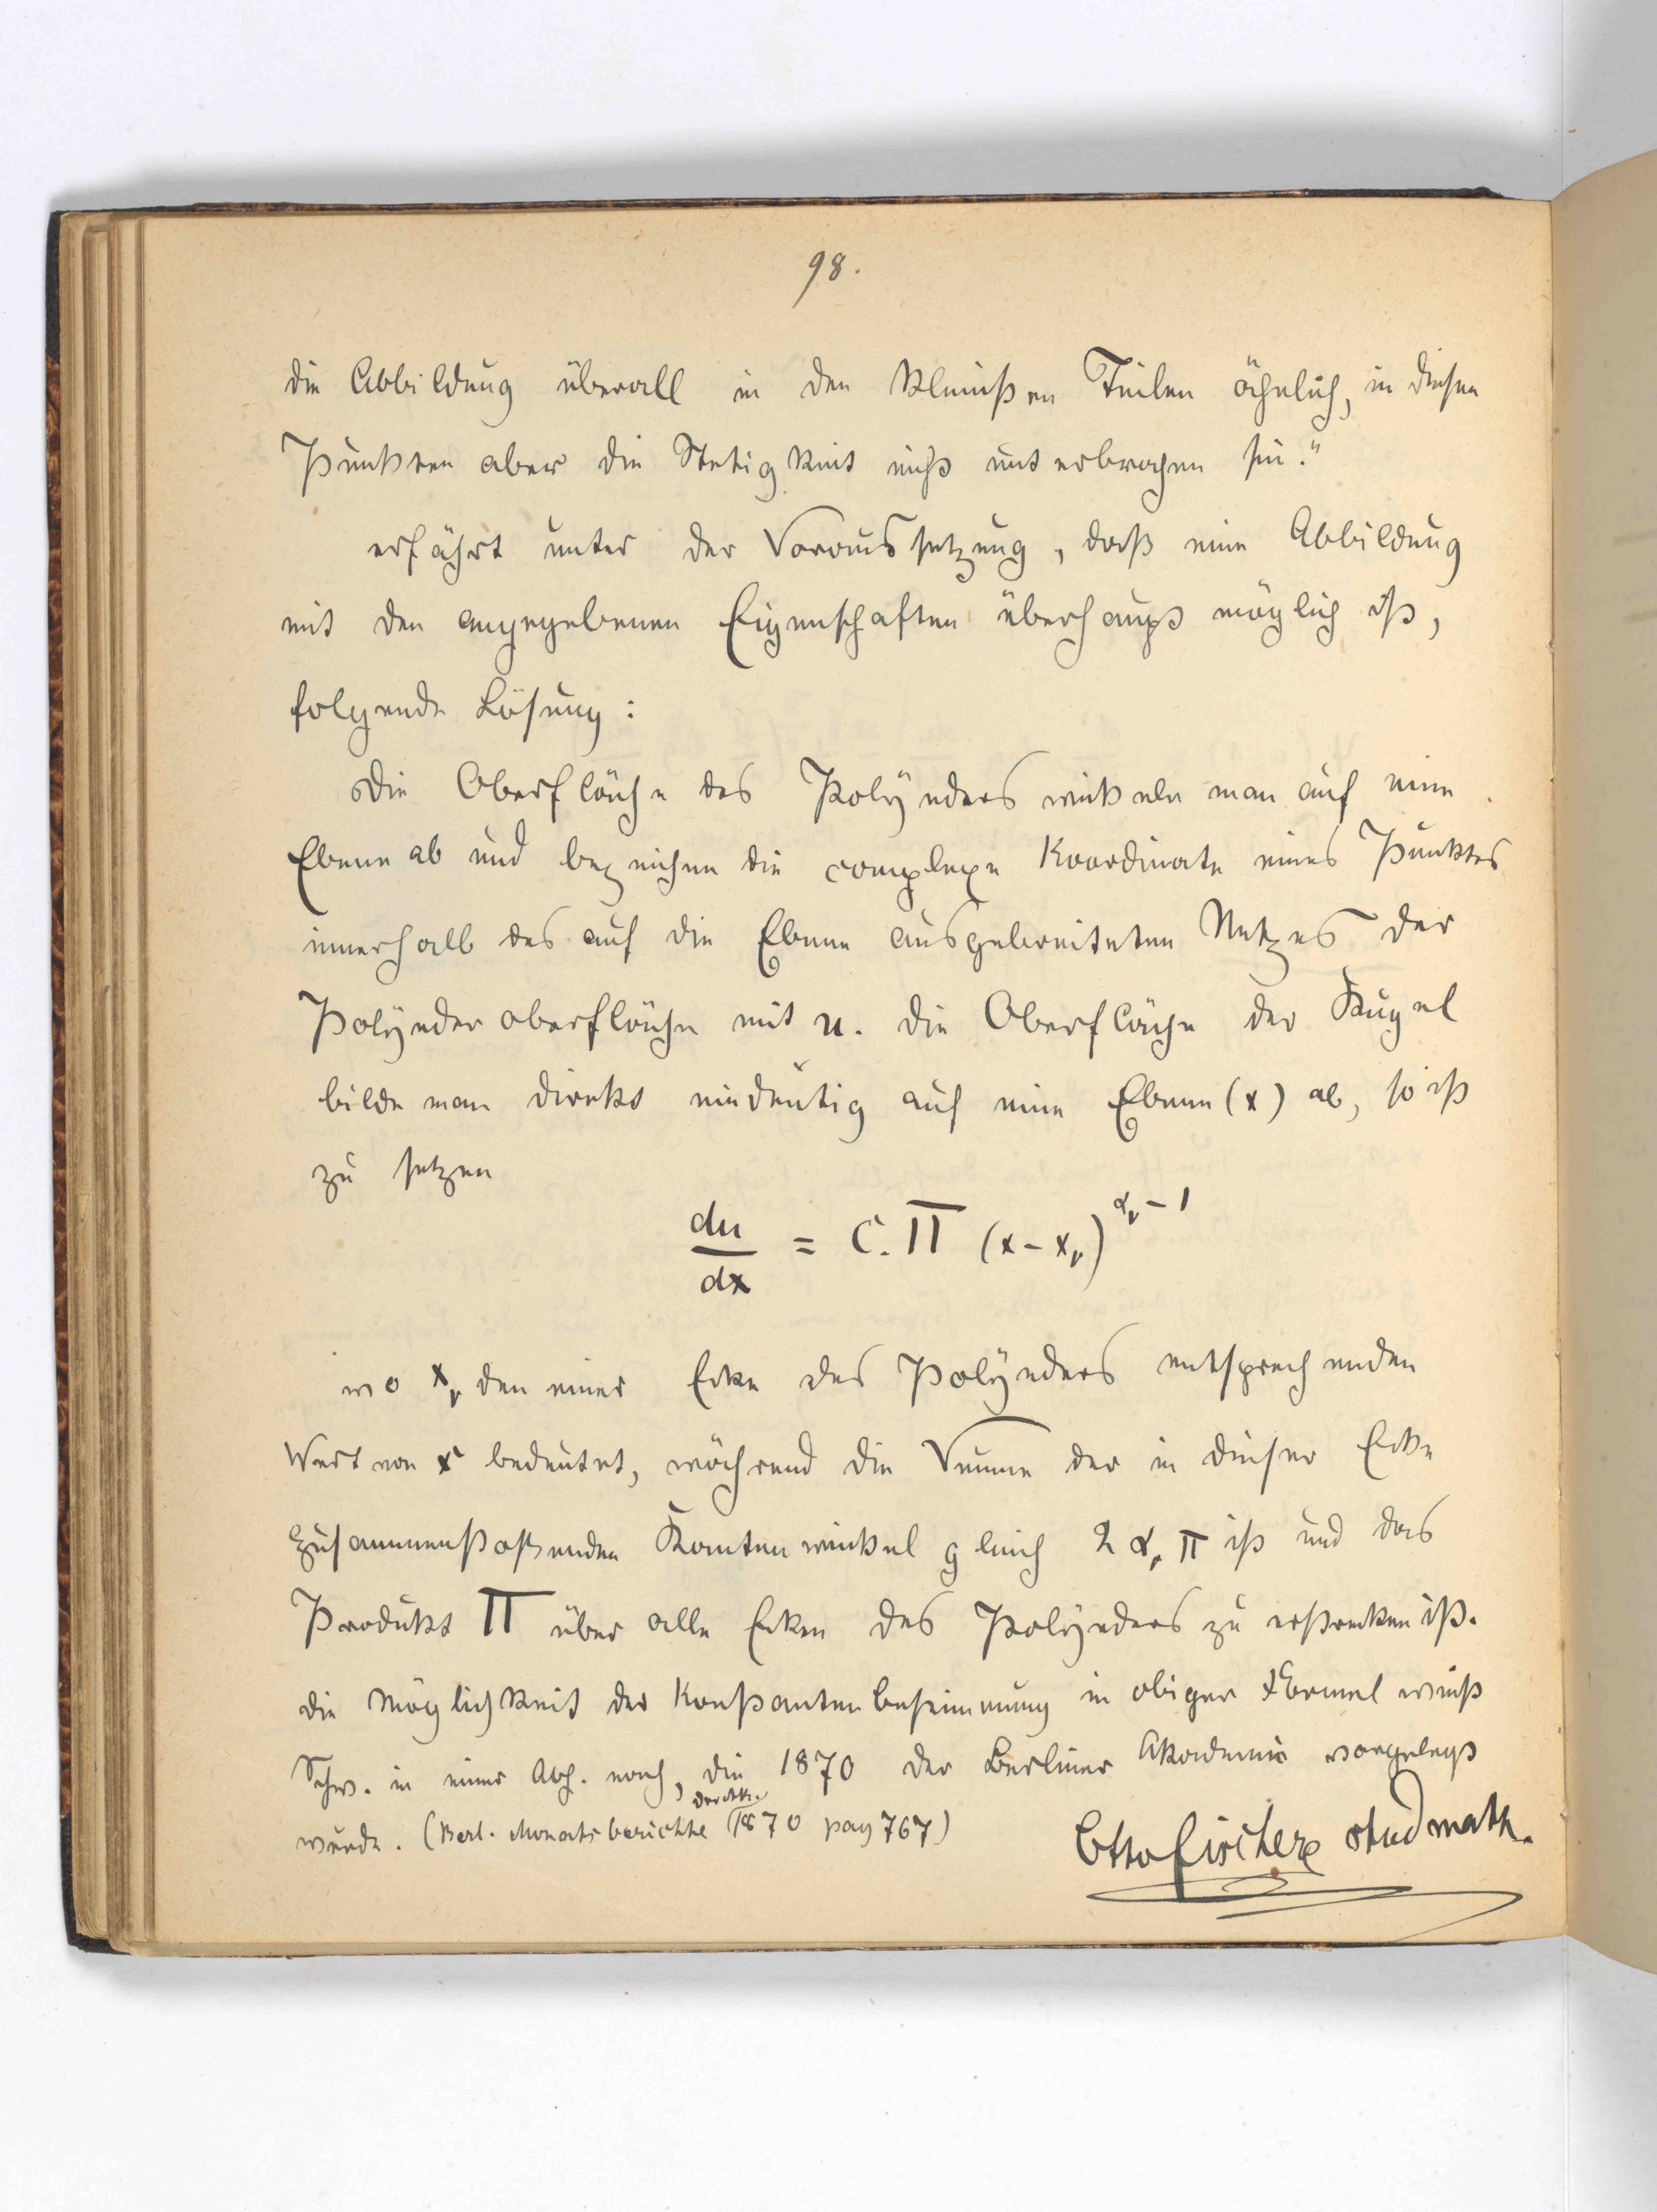 98.
die Abbildung überall in den kleinsten Teilen ähnlich, in diesen
Punkten aber die Stetigkeit nicht unterbrochen sei."
erfährt unter der Voraussetzung, daß eine Abbildung
mit den angegebenen Eigenschaften überhaupt möglich ist,
folgende Lösung:
Die Oberfläche des Polyeders wickele man auf eine
Ebene ab und bezeichne die complexe Koordinate eines Punktes
innerhalb des auf die Ebene ausgebreiteten Netzes der
Polyederoberfläche mit u. die Oberfläche der Kugel
bilde man direkt eindeutig auf eine Ebene (x) ab, so ist
zu setzen
du/dx = C. Π (x - xᵥ)^(αᵥ - 1)
wo xᵥ den einer Ecke des Polyeders entsprechenden
Wert von x bedeutet, während die Summe der in dieser Ecke
zusammenstoßenden Kantenwinkel gleich 2 αᵥ π ist und das
Produkt Π über alle Ecken des Polyeders zu erstrecken ist.
die Möglichkeit der Konstantenbestimmung in obiger Formel weist
Schw. in einer Abh. nach, die 1870 der Berliner Akademie vorgelegt
wurde. (Berl. Monatsberichte der Ak. 1870 pag 767)
Otto Fischer stud math.